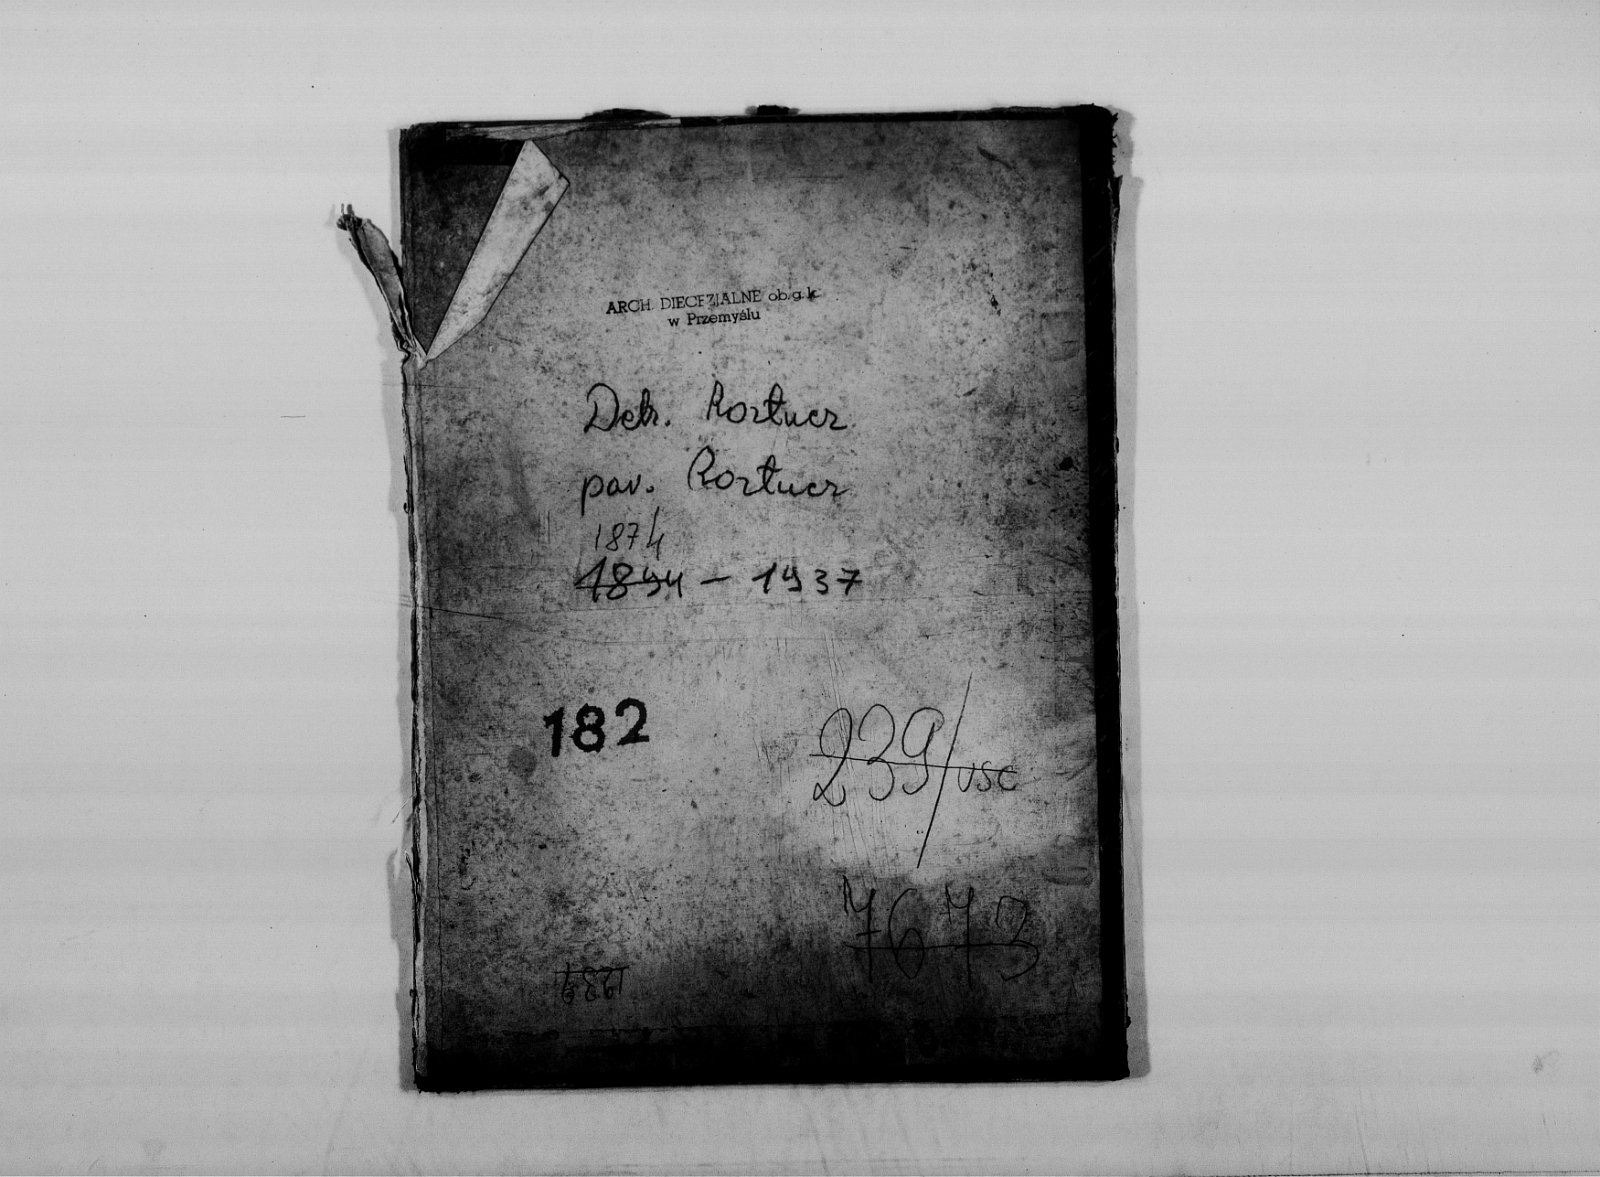 ARCH. DIECEZJALNE ob. g. k.
w Przemyślu
Dek. Roztucz.
par. Roztucz
1874
1894 – 1937
182
239/USC
7673